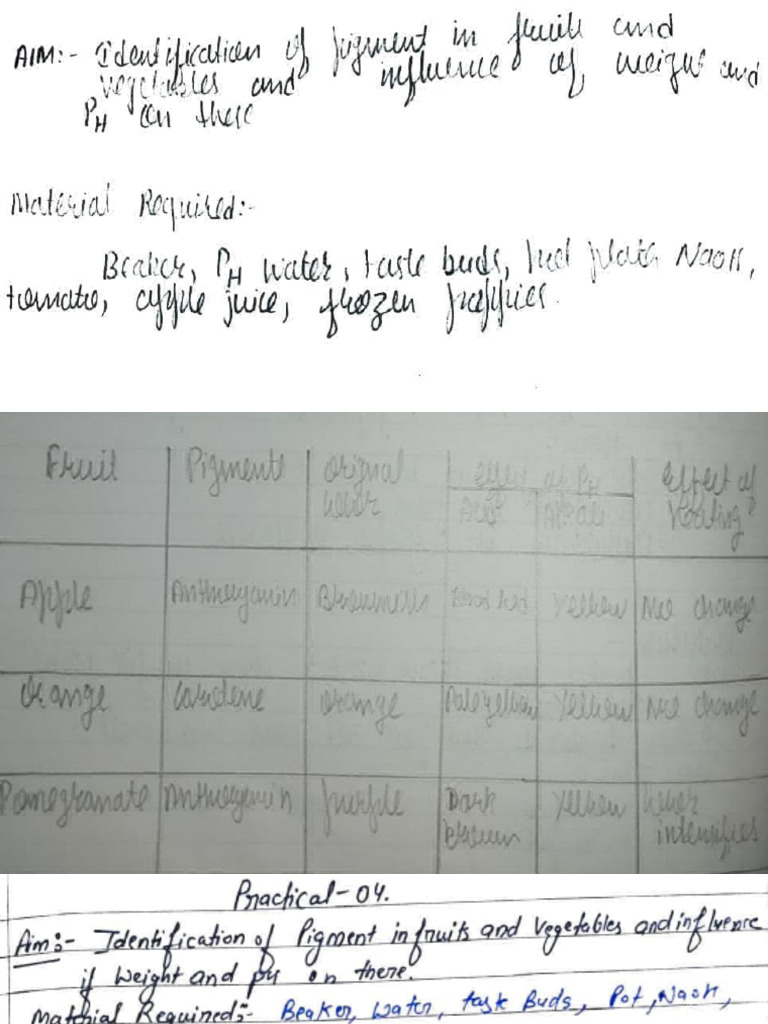 AIM:- Identification of pigment in fruits and
vegetables and influence of weight and
PH on these
Material Required:-
Beaker, PH water, taste buds, hot plate NaOH,
tomato, apple juice, frozen
Fruit Pigments Orignal Effect of PH Effect of
colour Acid Alkali Heating
Apple Anthocyanin Brownish Red Yellow No change
Orange Carotene Orange Pale yellow Yellow No change
Pomegranate Anthocyanin purple Dark Yellow Colour
brown intensifies
Practical-04.
Aim:- Identification of Pigment in fruits and vegetables and influence
if weight and pH on there.
Material Required:- Beaker, Water, task Buds, Pot, NaOH,